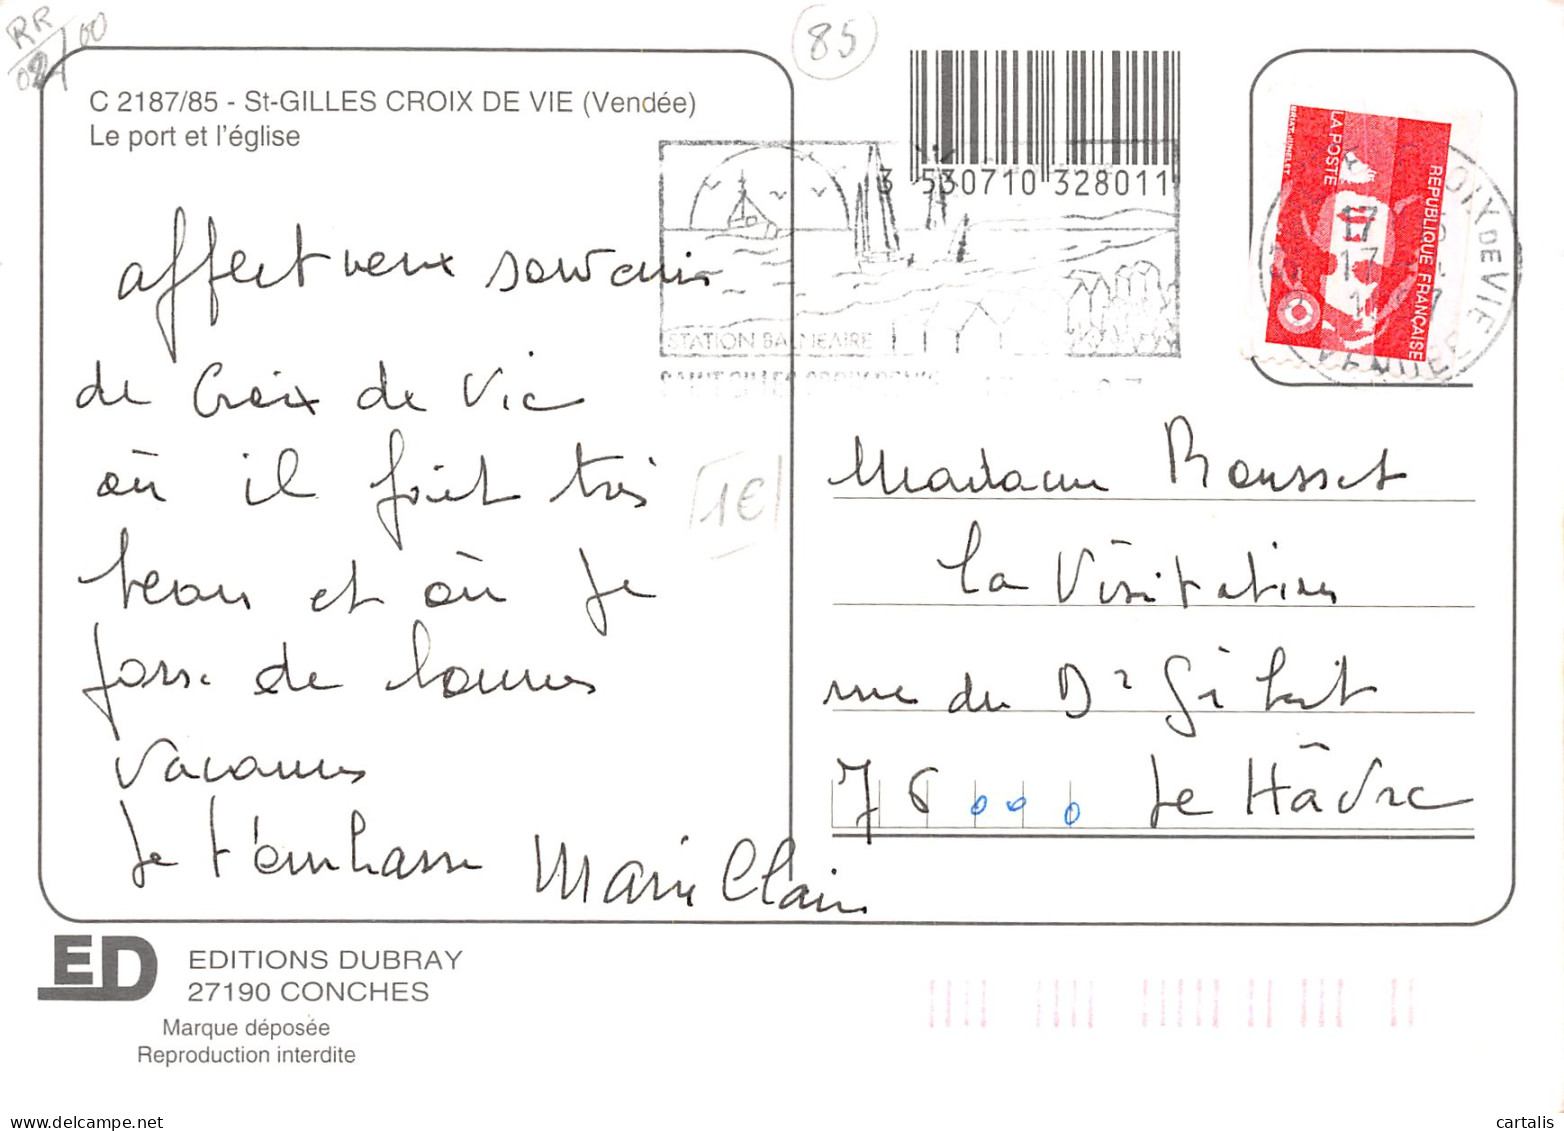 RR
02/00
85
C 2187/85 - St-GILLES CROIX DE VIE (Vendée)
Le port et l'église
3 530710 328011
LA POSTE
REPUBLIQUE FRANÇAISE
CROIX DE VIE
VENDEE
STATION BALNEAIRE
SAINT GILLES CROIX DE VIE
affectueux souvenir
de Croix de Vie
où il fait très
beau et où je
passe de bonnes
vacances
Je t'embrasse Marie Claire
1€
Madame Rousset
La Visitation
rue du Dr Gibert
76000 Le Hâvre
ED
EDITIONS DUBRAY
27190 CONCHES
Marque déposée
Reproduction interdite
cartalis